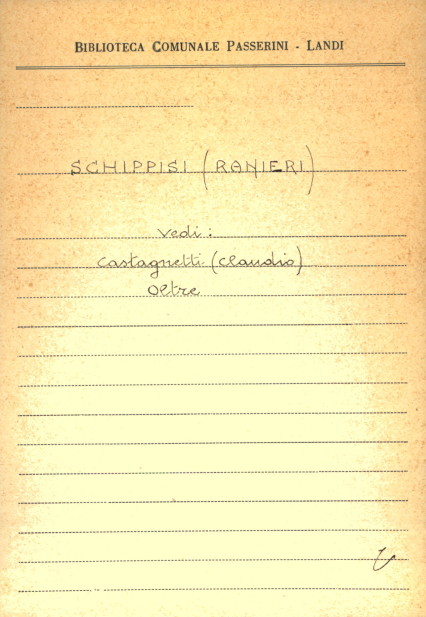 BIBLIOTECA COMUNALE PASSERINI - LANDI
SCHIPPISI (RANIERI)
Vedi:
Castagnetti (Claudio)
Oltre